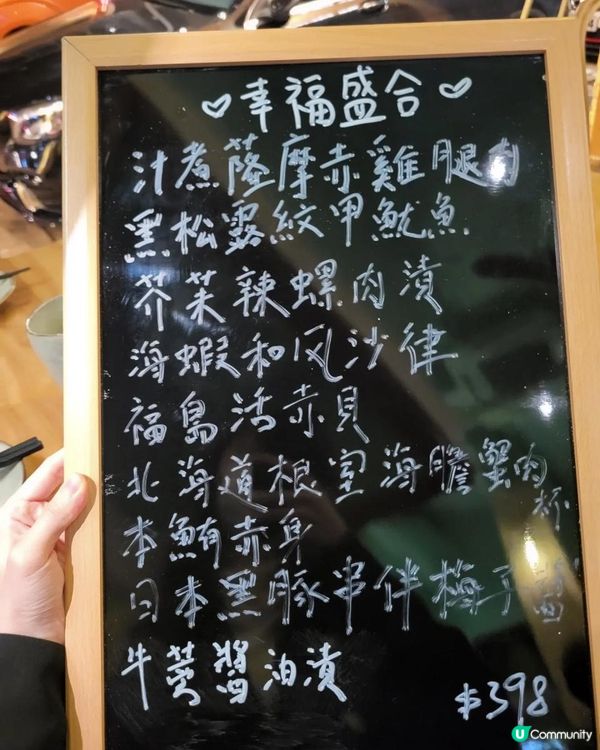 ♡幸福盛合♡
汁煮薩摩赤雞腿肉
黑松露紋甲魷魚
芥茉辣螺肉漬
海蝦和风沙律
福島活赤貝
北海道根室海膽蟹肉杯
本鮪赤身
日本黑豚串伴梅子醬
牛蒡醬油漬
$398
U Community